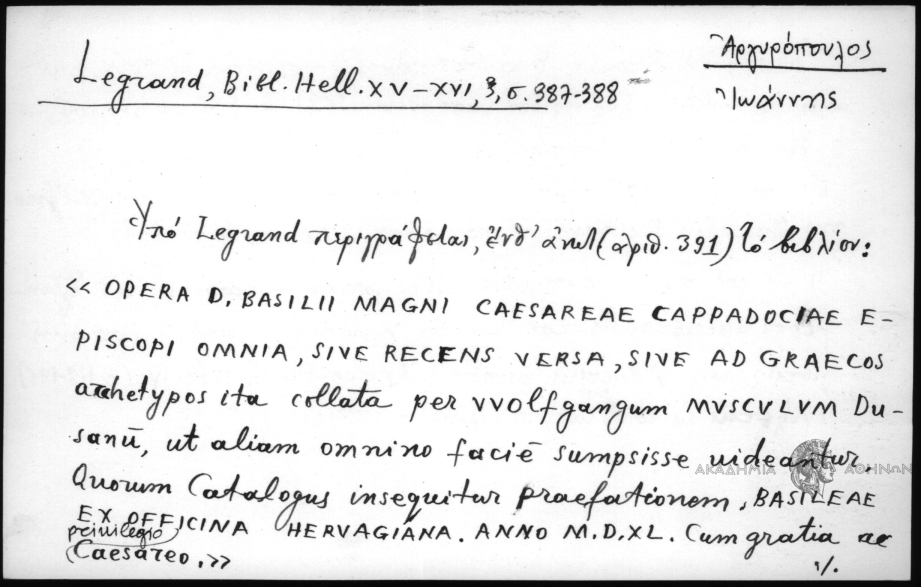 Ἀργυρόπουλος
Ἰωάννης
Legrand, Bibl. Hell. XV-XVI, 3, σ. 387-388
Ὑπό Legrand περιγράφεται, ἐνθ' ἀνωτ. (ἀριθ. 391) τό βιβλίον:
«OPERA D. BASILII MAGNI CAESAREAE CAPPADOCIAE E-
PISCOPI OMNIA, SIVE RECENS VERSA, SIVE AD GRAECOS
archetypos ita collata per VVolfgangum MVSCVLVM Du-
sanū, ut aliam omnino faciē sumpsisse uideantur.
Quorum Catalogus insequitur praefationem, BASILEAE
EX OFFICINA HERVAGIANA. ANNO M.D.XL. Cum gratia ac
privilegio
Caesareo.»
ΑΚΑΔΗΜΙΑ ΑΘΗΝΩΝ
./.